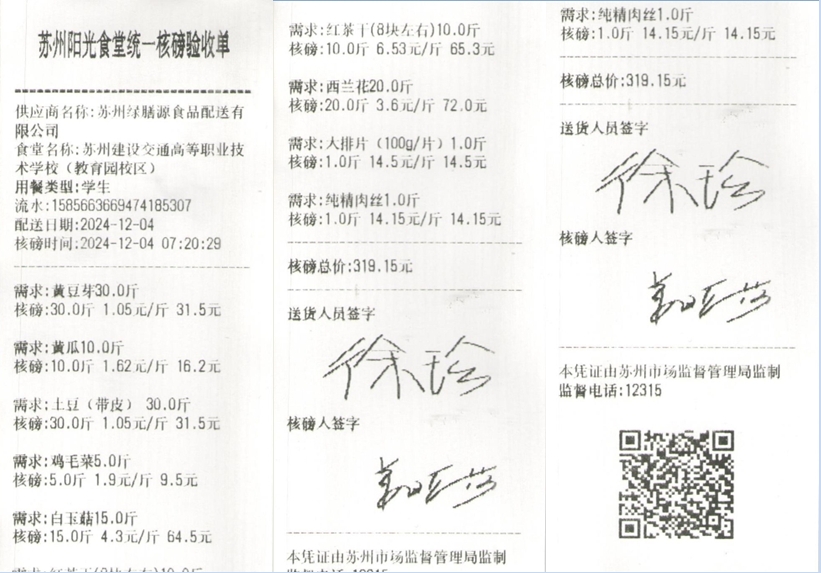 苏州阳光食堂统一核磅验收单
供应商名称:苏州绿膳源食品配送有
限公司
食堂名称:苏州建设交通高等职业技
术学校（教育园校区）
用餐类型:学生
流水:1585663669474185307
配送日期:2024-12-04
核磅时间:2024-12-04 07:20:29
需求:黄豆芽30.0斤
核磅:30.0斤 1.05元/斤 31.5元
需求:黄瓜10.0斤
核磅:10.0斤 1.62元/斤 16.2元
需求:土豆（带皮） 30.0斤
核磅:30.0斤 1.05元/斤 31.5元
需求:鸡毛菜5.0斤
核磅:5.0斤 1.9元/斤 9.5元
需求:白玉菇15.0斤
核磅:15.0斤 4.3元/斤 64.5元
需求:红茶干(8块左右)10.0斤
需求:红茶干(8块左右)10.0斤
核磅:10.0斤 6.53元/斤 65.3元
需求:西兰花20.0斤
核磅:20.0斤 3.6元/斤 72.0元
需求:大排片（100g/片）1.0斤
核磅:1.0斤 14.5元/斤 14.5元
需求:纯精肉丝1.0斤
核磅:1.0斤 14.15元/斤 14.15元
核磅总价:319.15元
送货人员签字
徐珍
核磅人签字
本凭证由苏州市场监督管理局监制
监督电话:12315
需求:纯精肉丝1.0斤
核磅:1.0斤 14.15元/斤 14.15元
核磅总价:319.15元
送货人员签字
徐珍
核磅人签字
本凭证由苏州市场监督管理局监制
监督电话:12315